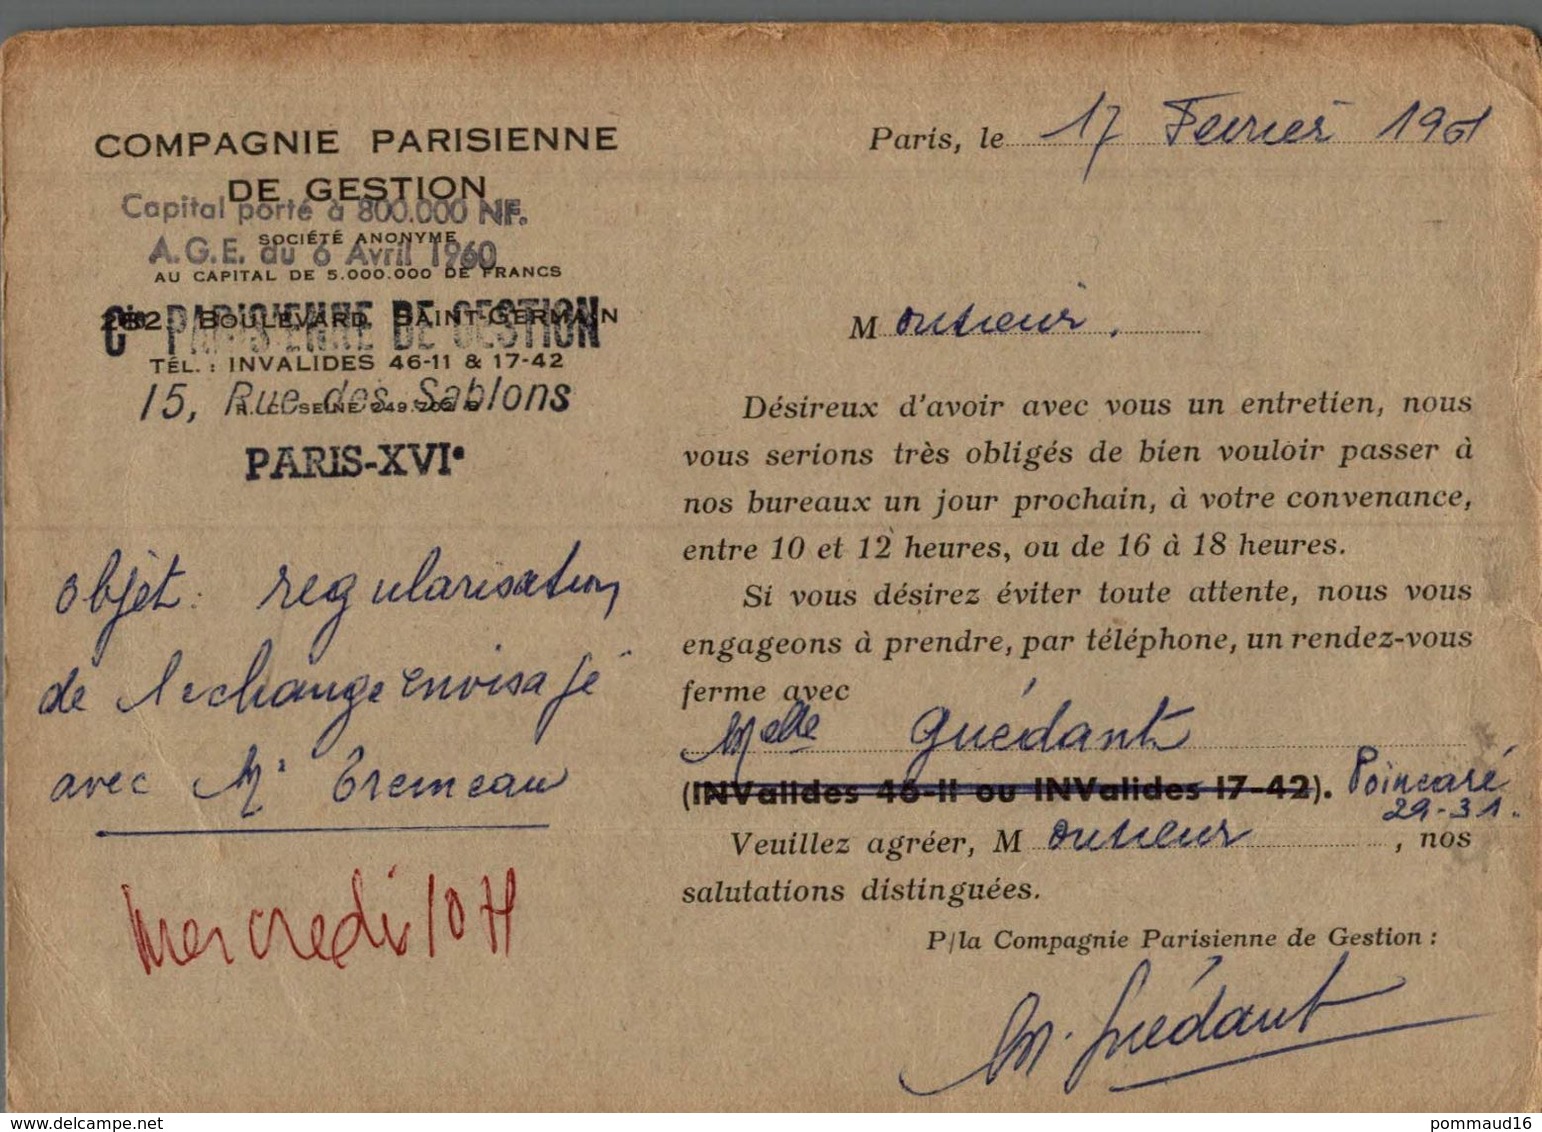 COMPAGNIE PARISIENNE
DE GESTION
Capital porté à 800.000 NF.
SOCIÉTÉ ANONYME
A.G.E. du 6 Avril 1960
AU CAPITAL DE 5.000.000 DE FRANCS
Cie PARISIENNE DE GESTION
282, BOULEVARD SAINT-GERMAIN
TÉL. : INVALIDES 46-11 & 17-42
15, Rue des Sablons
PARIS-XVIe
objet : regularisation
de l'echange envisagé
avec Mr Tremeau
Mercredi 10 H
Paris, le 17 Fevrier 1961
Monsieur.
Désireux d'avoir avec vous un entretien, nous
vous serions très obligés de bien vouloir passer à
nos bureaux un jour prochain, à votre convenance,
entre 10 et 12 heures, ou de 16 à 18 heures.
Si vous désirez éviter toute attente, nous vous
engageons à prendre, par téléphone, un rendez-vous
ferme avec
Melle Guédant
(INValides 46-11 ou INValides 17-42). Poincaré
29-31.
Veuillez agréer, Monsieur, nos
salutations distinguées.
P/la Compagnie Parisienne de Gestion :
M. Guédant
pommaud16